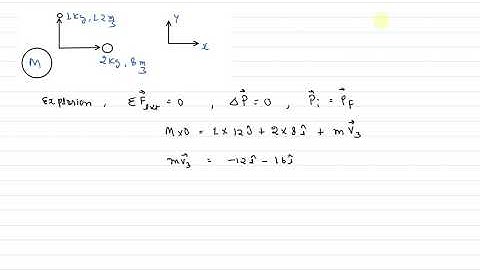 1Kg, 12 m/s
Y
X
M
2Kg, 8 m/s
Explosion, ΣF⃗ext = 0, ΔP⃗ = 0, P⃗i = P⃗F
M×0 = 1×12ĵ + 2×8ĵ + mV⃗3
mV⃗3 = -12ĵ - 16ĵ